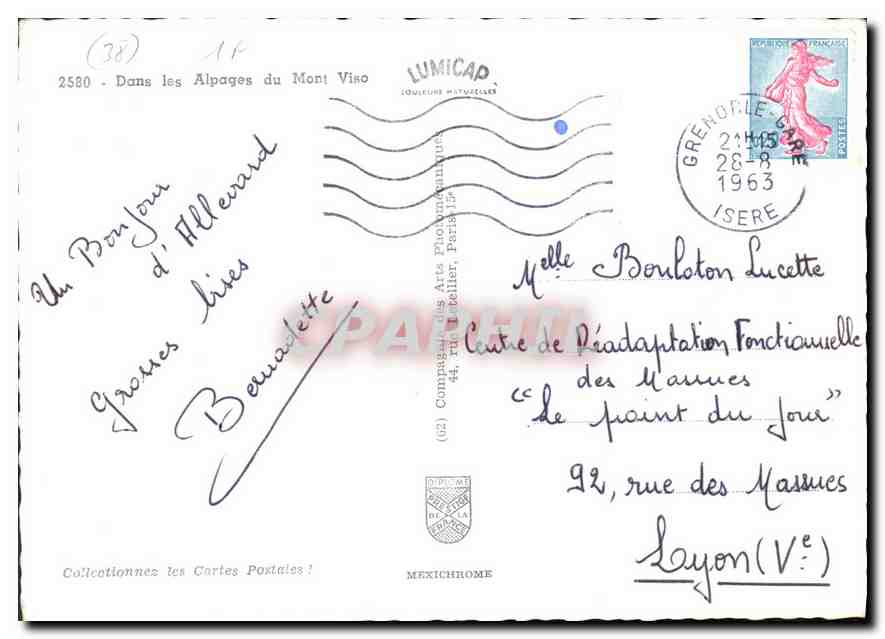 (38)
1F
2580 - Dans les Alpages du Mont Viso
LUMICAP
COULEURS NATURELLES
RÉPUBLIQUE FRANÇAISE
POSTES
GRENOBLE-GARE
21H15
28-8
1963
ISERE
Un Bonjour
d'Allevard
Grosses bises
Bernadette
(62) Compagnie des Arts Photomécaniques
44, rue Letellier, Paris-15e
CPAPHIL
Melle Bouloton Lucette
Centre de Réadaptation Fonctionnelle
des Massues
"Le point du Jour"
92, rue des Massues
Lyon (Ve)
DIPLOME
PRESTIGE
DE LA
FRANCE
Collectionnez les Cartes Postales !
MEXICHROME